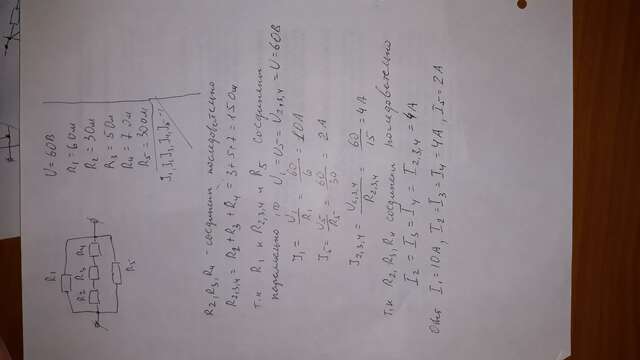 R1
R2 R3 R4
R5
U=60В
R1=6Ом
R2=3Ом
R3=5Ом
R4=7Ом
R5=30Ом
I1, I2, I3, I4, I5 -?
R2, R3, R4 - соединены последовательно
R2,3,4 = R2 + R3 + R4 = 3+5+7=15Ом
т.к R1 и R2,3,4 и R5 соединены
параллельно, то U1=U5=U2,3,4=U=60В
I1 = U1/R1 = 60/6 = 10А
I5 = U5/R5 = 60/30 = 2А
I2,3,4 = U2,3,4/R2,3,4 = 60/15 = 4А
т.к R2, R3, R4 соединены последовательно
I2 = I3 = I4 = I2,3,4 = 4А
Ответ I1=10А, I2=I3=I4=4А, I5=2А